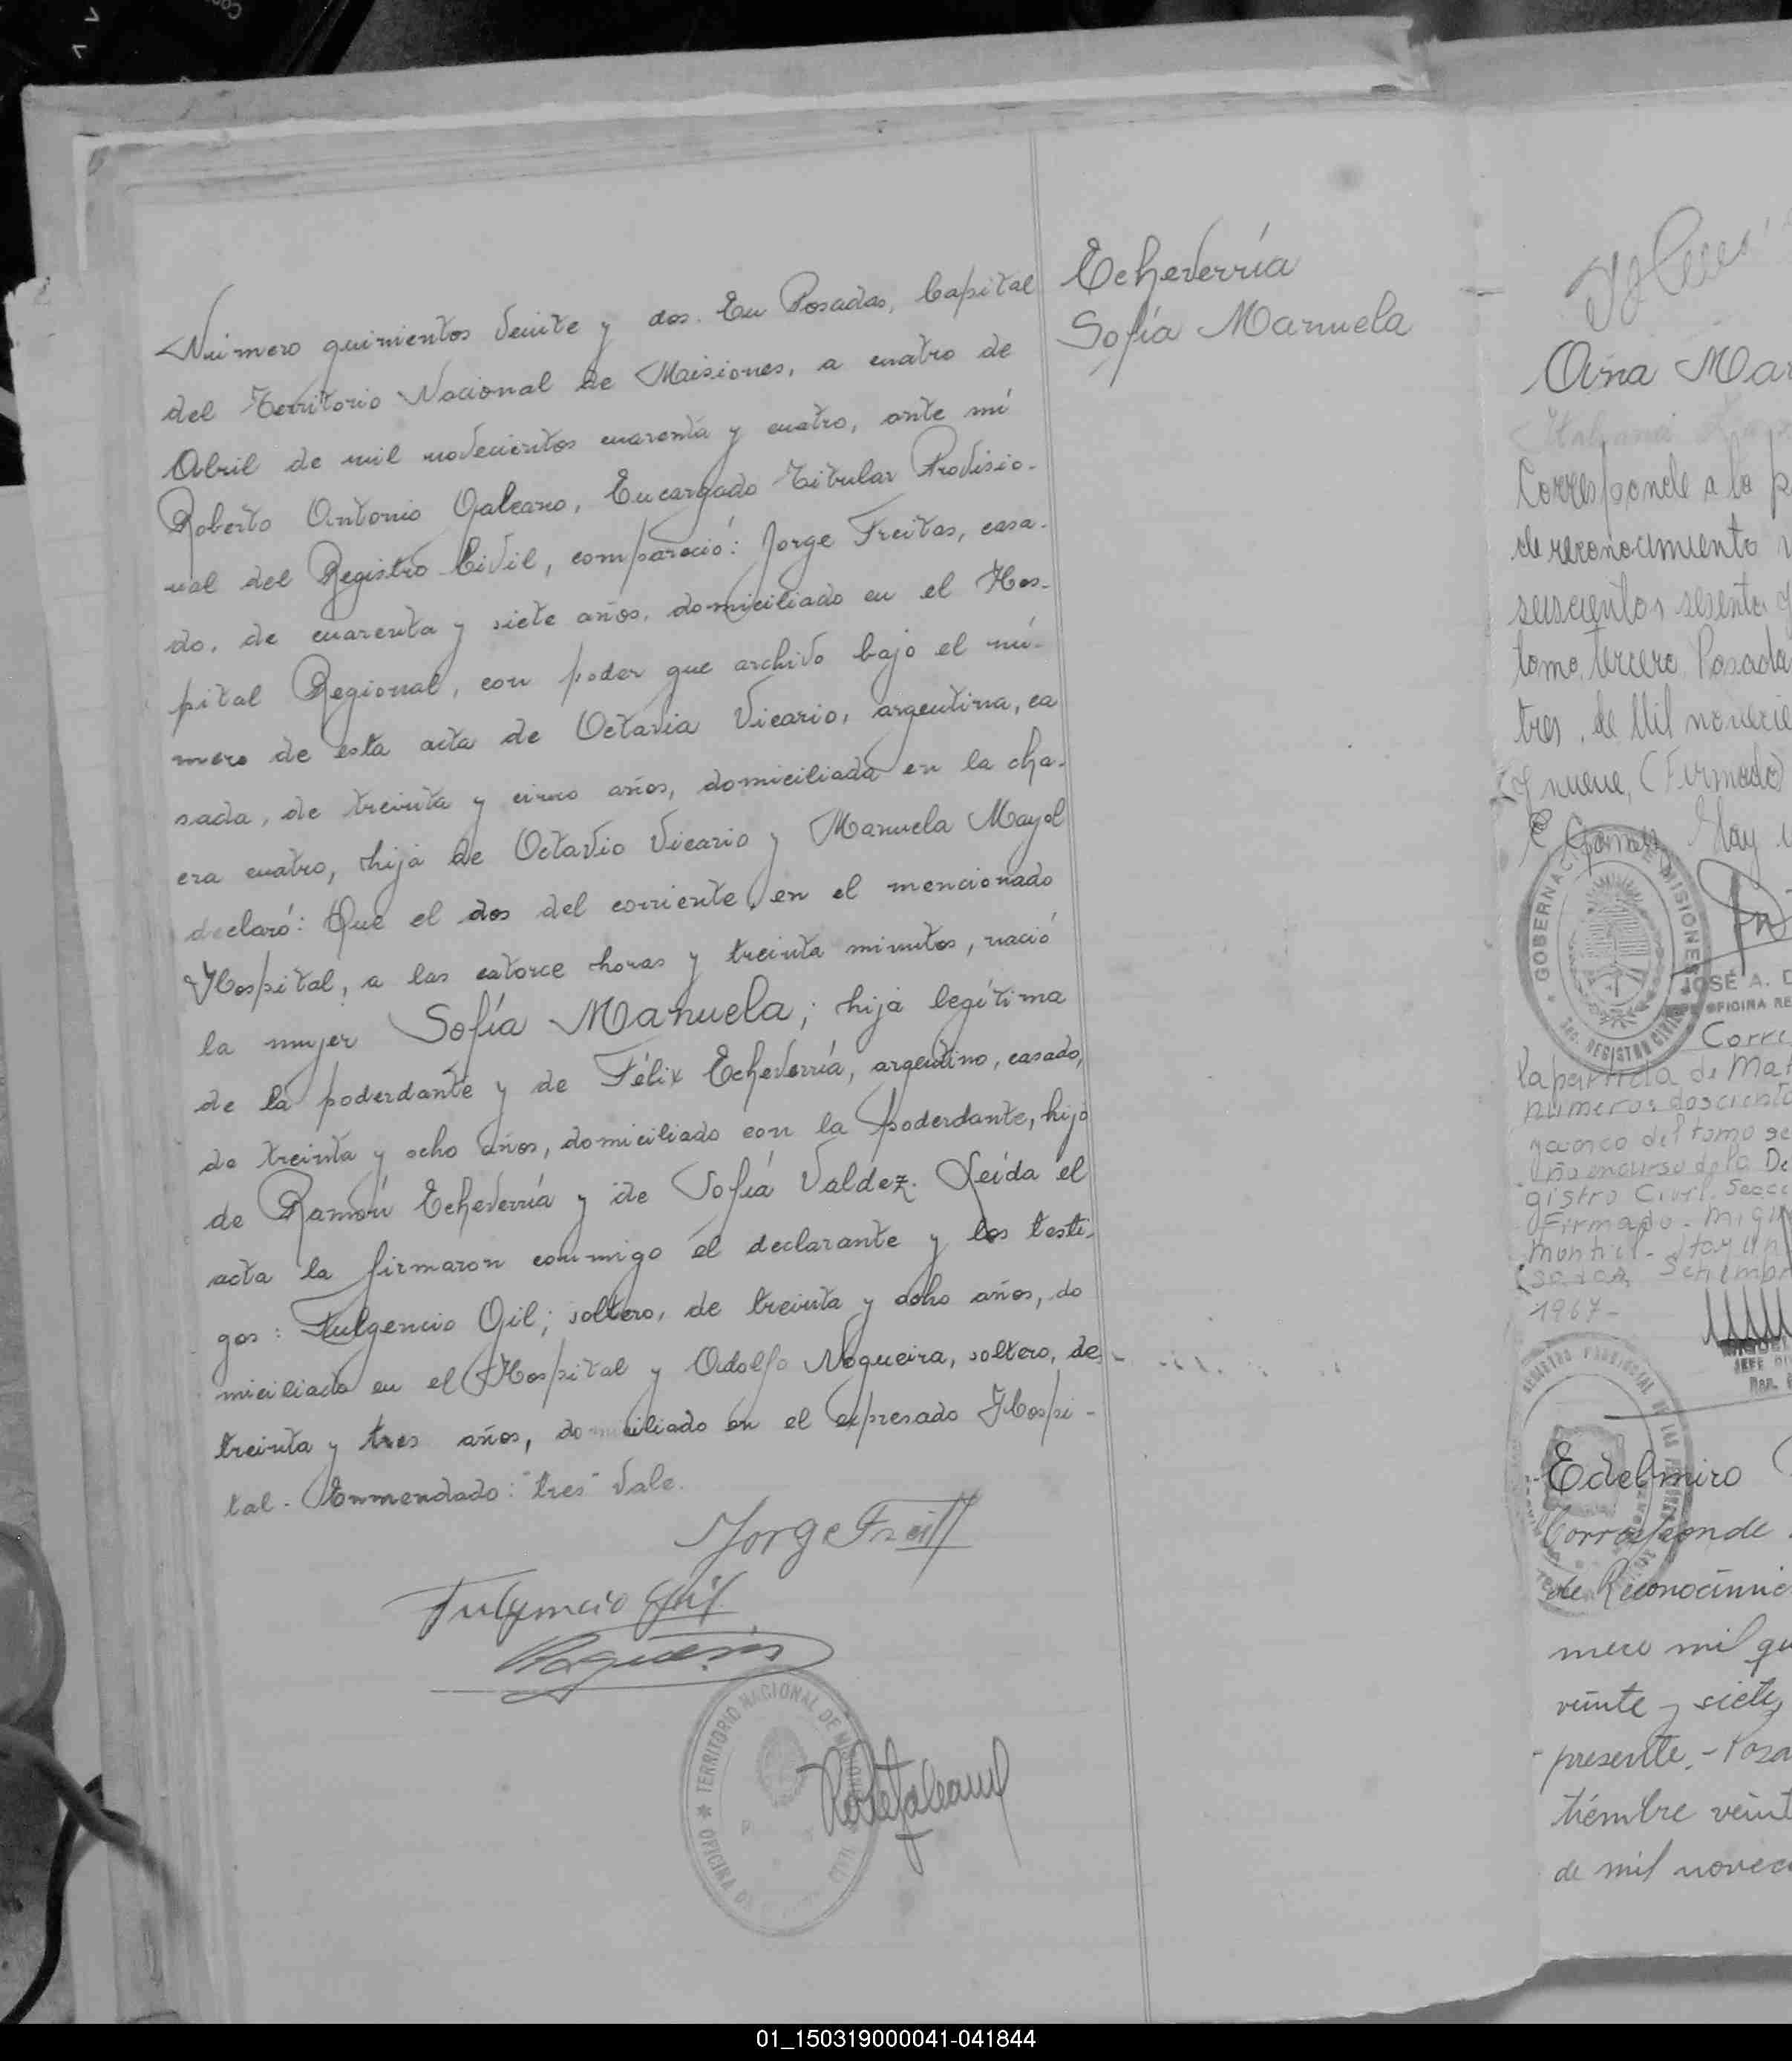 Echeverría
Sofía Manuela
Número quinientos veinte y dos. En Posadas, Capital
del Territorio Nacional de Misiones, a cuatro de
Abril de mil novecientos cuarenta y cuatro, ante mí
Roberto Antonio Galeano, Encargado Titular Provisio-
nal del Registro Civil, compareció: Jorge Freitas, casa-
do, de cuarenta y siete años, domiciliado en el Hos-
pital Regional, con poder que archivo bajo el nú-
mero de esta acta de Octavia Vicario, argentina, ca
sada, de treinta y cinco años, domiciliada en la cha-
cra cuatro, hija de Octavio Vicario y Manuela Mayol
declaró: Que el dos del corriente, en el mencionado
Hospital, a las catorce horas y treinta minutos, nació
la mujer Sofía Manuela; hija legítima
de la poderdante y de Félix Echeverría, argentino, casado,
de treinta y ocho años, domiciliado con la poderdante, hijo
de Ramón Echeverría y de Sofía Valdez. Leída el
acta la firmaron conmigo el declarante y los testi-
gos: Fulgencio Gil; soltero, de treinta y ocho años, do
miciliado en el Hospital y Adolfo Nogueira, soltero, de
treinta y tres años, domiciliado en el expresado Hospi-
tal - Enmendado: "tres" Vale.
Jorge Freit
Fulgencio Gil
Nogueira
TERRITORIO NACIONAL DE MISIONES
OFICINA DE CIVIL
Ana Mar
Corresponde a la p
de reconocimiento
seiscientos sesenta y
tomo tercero. Posada
tres, de Mil novecie
y nueve, (Firmado)
E. Gomez Hay
GOBERNAC MISIONES
REGISTRO CIVIL
JOSÉ A. D
OFICINA RE
Corre
la partida de Mat
números doscient
y cinco del tomo se
de la De
gistro Civil. Secci
Firmado - Migu
Hay un
1967-
MIGUEL
JEFE
REGISTRO PROVINCIAL DE LAS PERSONAS
Edelmiro
Corresponde
de Reconocimie
mero mil qu
veinte y siete,
presente. - Posa
tiembre veint
de mil novec
01_150319000041-041844